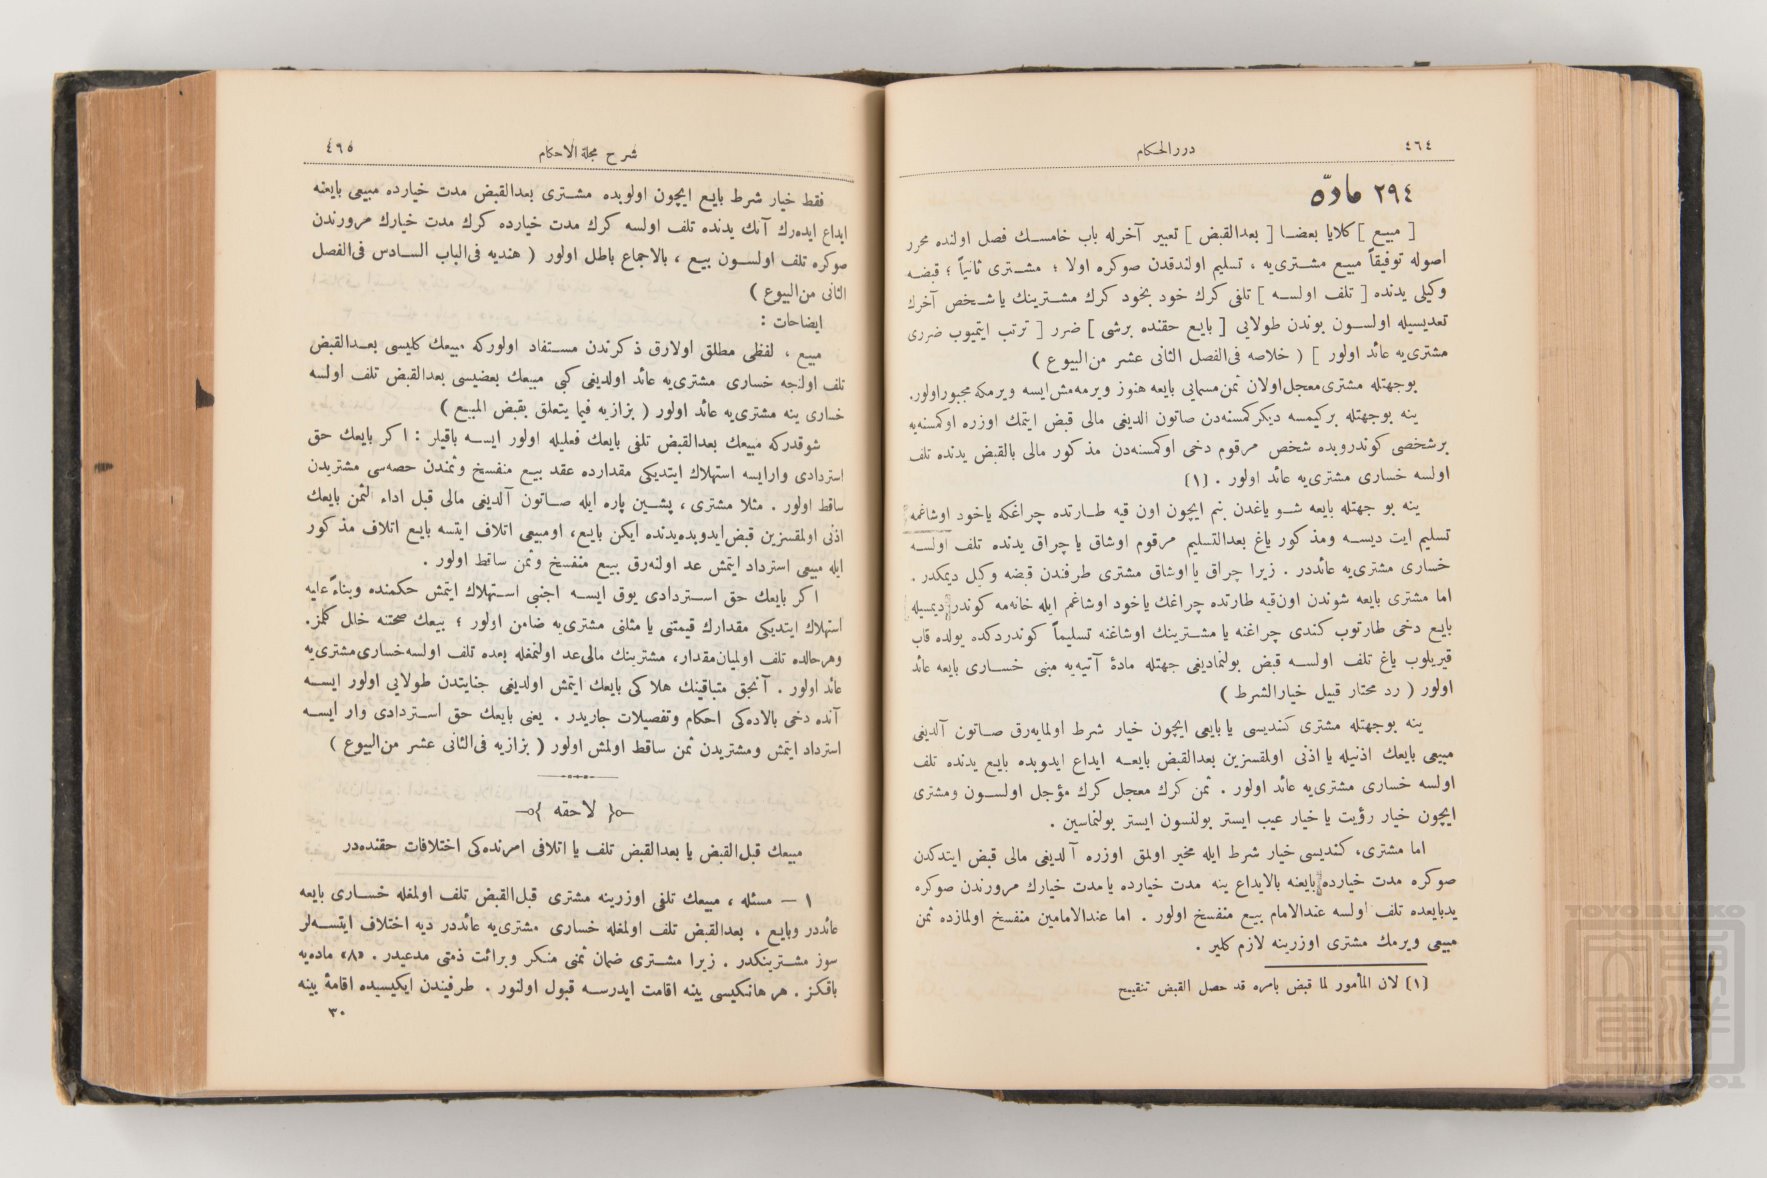 ٤٦٤
دررالحكام
٢٩٤ مادّه
[ مبيع ] كلايا بعضـا [ بعدالقبض ] تعبير آخرله باب خامسـك فصل اولنده محرر
اصوله توفيقاً مبيع مشـترى‌يه ، تسليم اولندقدن صوكره اولا ؛ مشـترى ثانياً ؛ قبضـه
وكيلى يدنده [ تلف اولسـه ] تلفى كرك خود بخود كرك مشـترينك ياشـخص آخرك
تعديسيله اولسـون بوندن طولايى [ بايع حقنده برشى ] ضرر [ ترتب ايتميوب ضررى
مشترى‌يه عائد اولور ] ( خلاصه فى‌الفصل الثانى عشر من‌البيوع )
بوجهتله مشترى‌معجل‌اولان ثمن‌مسمايى بايعه هنوز ويرمه‌مش‌ايسه ويرمكه مجبوراولور.
ينه بوجهتله بركيمسه ديكركمسنه‌دن صاتون الديغى مالى قبض ايتمك اوزره اوكمسنه‌يه
برشخصى كوندروبده شخص مرقوم دخى اوكمسنه‌دن مذكور مالى بالقبض يدنده تلف
اولسه خسارى مشترى‌يه عائد اولور . (١)
ينه بو جهتله بايعه شـو ياغدن بنم ايچون اون قيه طـارتده چراغكه ياخود اوشاغمه
تسليم ايت ديسـه ومذكور ياغ بعدالتسليم مرقوم اوشاق ياچراق يدنده تلف اولسـه
خسارى مشترى‌يه عائددر . زيرا چراق يااوشاق مشترى طرفندن قبضه وكيل ديمكدر .
اما مشترى بايعه شوندن اون‌قيه طارتده چراغك ياخود اوشاغم ايله خانه‌مه كوندر ديمسيله
بايع دخى طارتوب كندى چراغنه يا مشـترينك اوشاغنه تسليماً كوندردكده يولده قاب
قيريلوب ياغ تلف اولسـه قبض بولنماديغى جهتله مادۀ آتيه‌يه مبنى خسـارى بايعه عائد
اولور ( رد محتار قبيل خيارالشرط )
ينه بوجهتله مشترى كنديسى يا بايعى ايچون خيار شرط اولمايه‌رق صـاتون آلديغى
مبيعى بايعك اذنيله يا اذنى اولمقسزين بعدالقبض بايعـه ايداع ايدوبده بايع يدنده تلف
اولسه خسارى مشترى‌يه عائد اولور . ثمن كرك معجل كرك مؤجل اولسـون ومشترى
ايچون خيار رؤيت يا خيار عيب ايستر بولنسون ايستر بولنماسين .
اما مشترى، كنديسى خيار شرط ايله مخير اولمق اوزره آلديغى مالى قبض ايتدكدن
صوكره مدت خيارده بايعنه بالايداع ينه مدت خيارده يامدت خيارك مرورندن صوكره
يدبايعده تلف اولسه عندالامام بيع منفسخ اولور . اما عندالامامين منفسخ اولمازده ثمن
مبيعى ويرمك مشترى اوزرينه لازم كلير .
(١) لان المأمور لما قبض بامره قد حصل القبض تنقيح
٤٦٥
شرح مجلة الاحكام
فقط خيار شرط بايـع ايچون اولوبده مشـترى بعدالقبض مدت خيارده مبيعى بايعنه
ايداع ايده‌رك آنك يدنده تلف اولسه كرك مدت خيارده كرك مدت خيارك مرورندن
صوكره تلف اولسـون بيـع ، بالاجماع باطل اولور ( هنديه فى‌الباب السـادس فى‌الفصل
الثانى من‌البيوع )
ايضاحات :
مبيع ، لفظى مطلق اولارق ذكرندن مسـتفاد اولوركه مبيعك كليسى بعـدالقبض
تلف اولنجه خسارى مشترى‌يه عائد اولديغى كبى مبيعك بعضيسى بعدالقبض تلف اولسه
خسارى ينه مشترى‌يه عائد اولور ( بزازيه فيما يتعلق بقبض المبيـع )
شوقدركه مبيعك بعدالقبض تلفى بايعك فعليله اولور ايسـه باقيلر : اكر بايعك حق
استردادى وارايسه استهلاك ايتديكى مقدارده عقد بيـع منفسخ وثمندن حصه‌سى مشتريدن
ساقط اولور . مثلا مشترى ، پشـين پاره ايله صـاتون آلديغى مالى قبل اداء الثمن بايعك
اذنى اولمقسزين قبض ايدوبده‌يدنده ايكن بايـع، اومبيعى اتلاف ايتسه بايـع اتلاف مذكور
ايله مبيعى استرداد ايتمش عد اولنه‌رق بيـع منفسخ وثمن ساقط اولور .
اكر بايعك حق اسـتردادى يوق ايسـه اجنبى اسـتهلاك ايتمش حكمنده وبناءً عليه
استهلاك ايتديكى مقدارك قيمتنى يا مثلنى مشترى‌يه ضامن اولور ؛ بيعك صحتنه خلل كلمز.
وهرحالده تلف اولميان‌مقدار، مشترينك مالى‌عد اولنمغله بعده تلف اولسه‌خسارى‌مشترى‌يه
عائد اولور . آنجق متباقينك هلاكى بايعك ايتمش اولديغى جنايتدن طولايى اولور ايسـه
آنده دخى بالاده‌كى احكام وتفصيلات جاريدر . يعنى بايعك حق اسـتردادى وار ايسـه
استرداد ايتمش ومشتريدن ثمن ساقط اولمش اولور ( بزازيه فى‌الثانى عشر من‌البيوع )
لاحقه
مبيعك قبل‌القبض يا بعدالقبض تلف يا اتلافى امرنده‌كى اختلافات حقنده‌در
١ — مسئله ، مبيعك تلفى اوزرينه مشترى قبل‌القبض تلف اولمغله خسـارى بايعه
عائددر وبايـع ، بعدالقبض تلف اولمغله خسارى مشترى‌يه عائددر ديه اختلاف ايتسـه‌لر
سوز مشـترينكدر . زيرا مشـترى ضمان ثمنى منـكر وبرائت ذمتى مدعيدر . «٨» ماده‌يه
باقكز . هر هانكيسى بينه اقامت ايدرسـه قبول اولنور . طرفيندن ايكيسيده اقامۀ بينه
٣٠
TOYO BUNKO